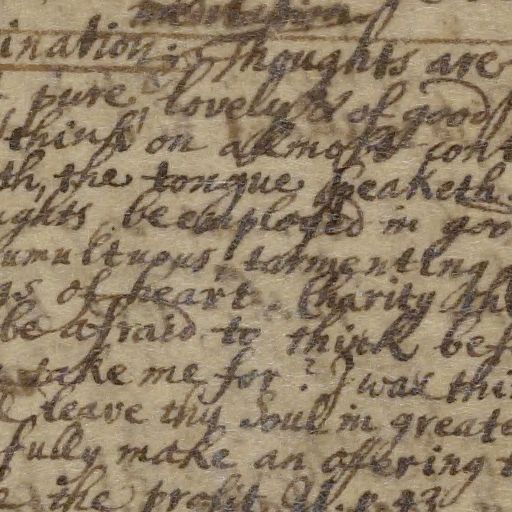 meditation
ination: Thoughts are
pure, lovely & of good
think on almost cont
th, the tongue speaketh.
ghts be employed in goo
umultuous, tormenting
gs of heart. Charity th
be afraid to think bef
take me for? I was thin
leave thy Soul in greate
fully make an offering t
e the profit